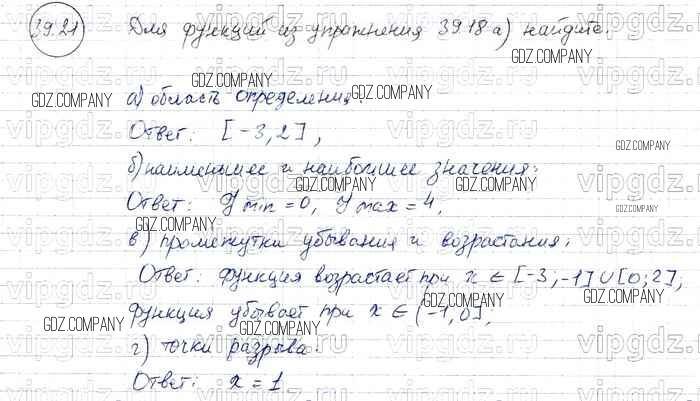 39.21 Для функций из упражнения 39.18 а) найдите:
GDZ.COMPANY
GDZ.COMPANY
GDZ.COMPANY
GDZ.COMPANY
а) область определения:
Ответ: [-3, 2],
GDZ.COMPANY
б) наименьшее и наибольшее значения:
GDZ.COMPANY
GDZ.COMPANY
Ответ: y min = 0, y max = 4,
GDZ.COMPANY
GDZ.COMPANY
в) промежутки убывания и возрастания:
Ответ: функция возрастает при x ∈ [-3; -1] ∪ [0; 2],
GDZ.COMPANY
функция убывает при x ∈ (-1, 0],
GDZ.COMPANY
GDZ.COMPANY
г) точки разрыва.
Ответ: x = 1
vipgdz.ru